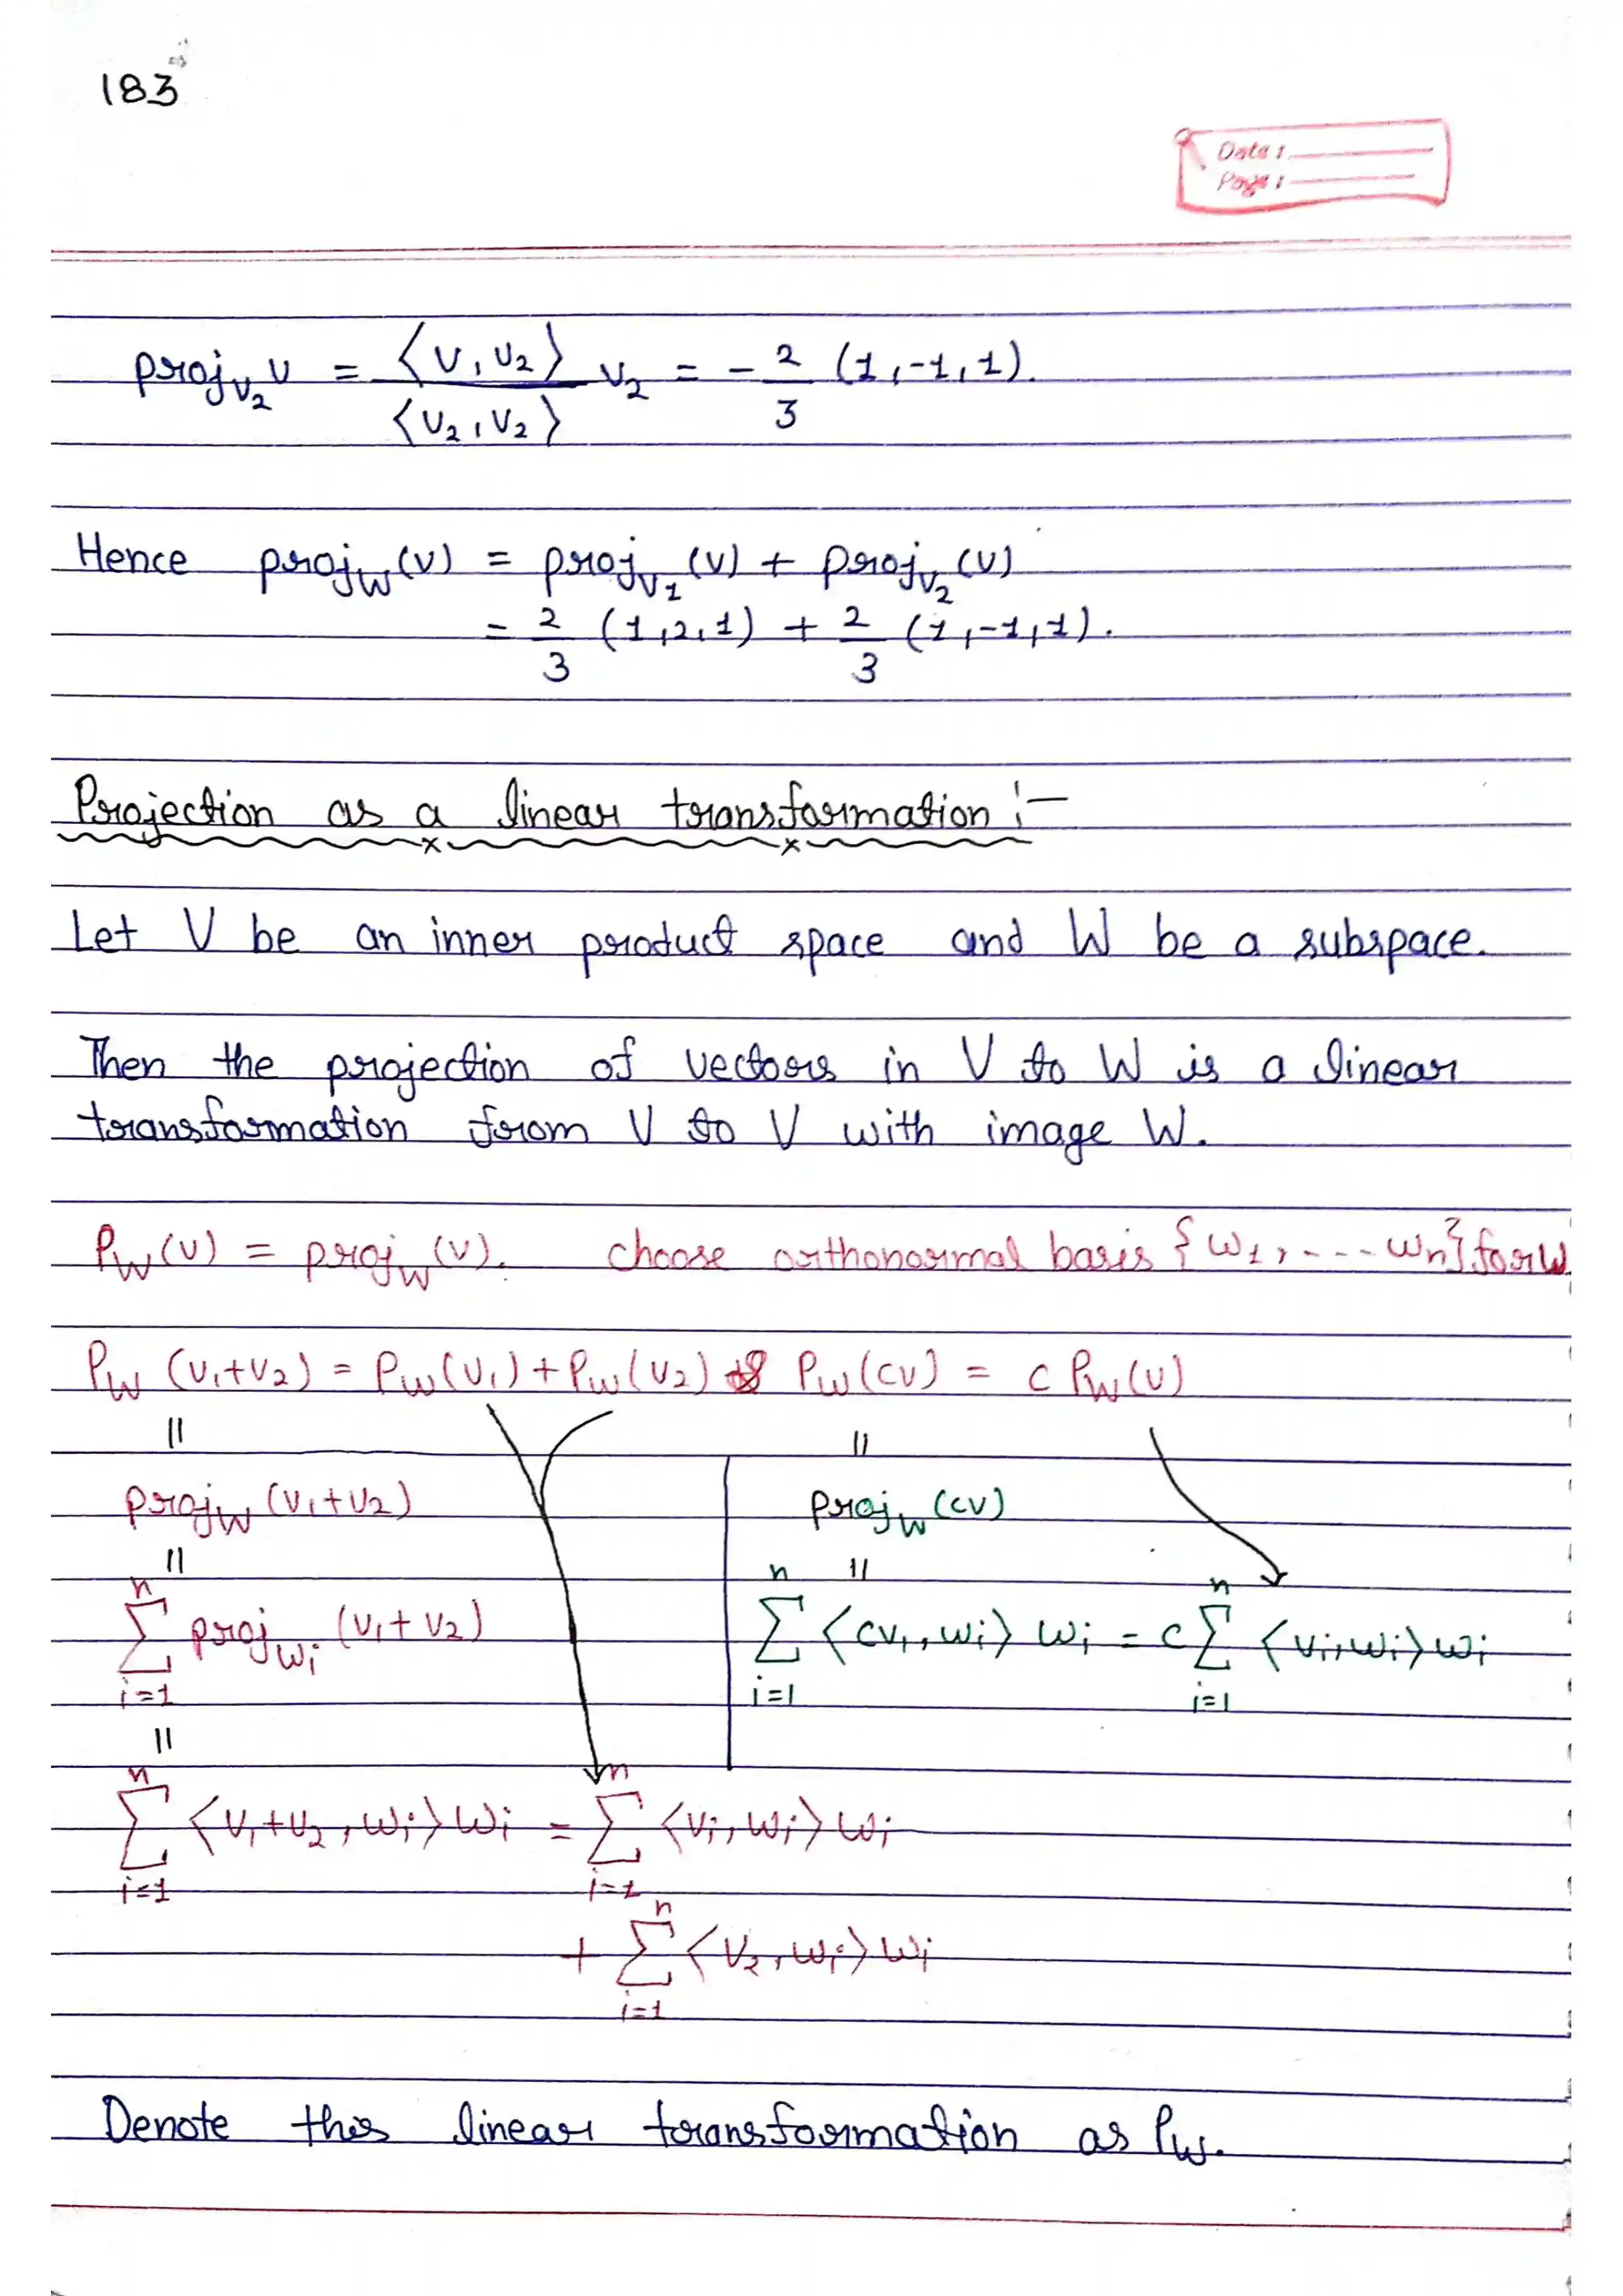 183
Date :
Page :
proj_{v_2} v = ⟨v, v_2⟩ / ⟨v_2, v_2⟩ v_2 = - 2/3 (1, -1, 1).
Hence proj_W (v) = proj_{v_1} (v) + proj_{v_2} (v)
= 2/3 (1, 2, 1) + 2/3 (1, -1, 1).
Projection as a linear transformation :-
Let V be an inner product space and W be a subspace.
Then the projection of vectors in V to W is a linear
transformation from V to V with image W.
P_W (v) = proj_W (v). choose orthonormal basis {w_1, ---- w_n} for W
P_W (v_1+v_2) = P_W (v_1) + P_W (v_2) & P_W (cv) = c P_W (v)
|| ||
proj_W (v_1+v_2) proj_W (cv)
|| ||
∑_{i=1}^{n} proj_{w_i} (v_1+v_2) ∑_{i=1}^{n} ⟨cv_1, w_i⟩ w_i = c ∑_{i=1}^{n} ⟨v_i, w_i⟩ w_i
||
∑_{i=1}^{n} ⟨v_1+v_2, w_i⟩ w_i = ∑_{i=1}^{n} ⟨v_i, w_i⟩ w_i
+ ∑_{i=1}^{n} ⟨v_2, w_i⟩ w_i
Denote this linear transformation as P_W.